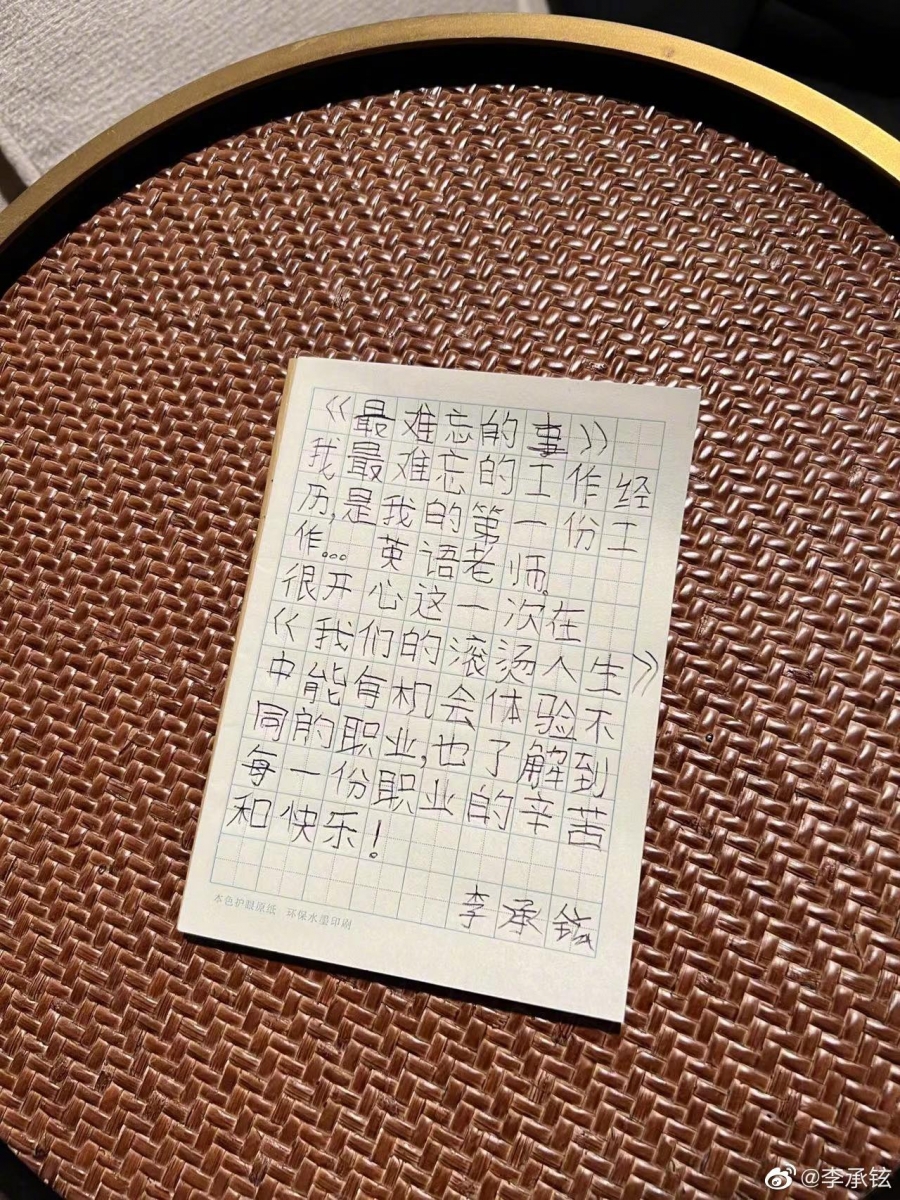 《最难忘的事》
我最难忘的工作经
历,是我的第一份工
作... 英语老师。
很开心这一次在
《我们的滚烫人生》
中能有机会体验不
同的职业,也了解到
每一份职业的辛苦
和快乐!
李承铉
本色护眼原纸 环保水墨印刷
@李承铉